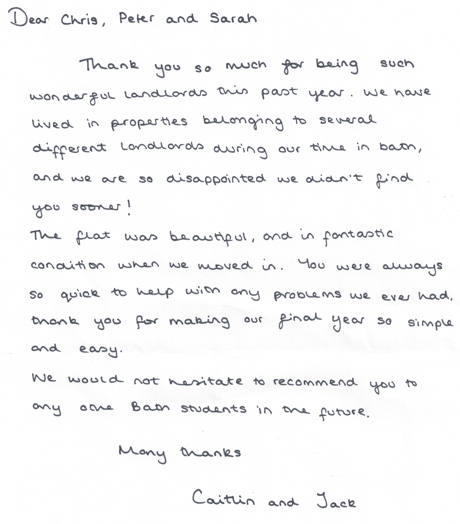 Dear Chris, Peter and Sarah
Thank you so much for being such
wonderful landlords this past year. We have
lived in properties belonging to several
different landlords during our time in bath,
and we are so disappointed we didn't find
you sooner!
The flat was beautiful, and in fantastic
condition when we moved in. You were always
so quick to help with any problems we ever had,
thank you for making our final year so simple
and easy.
We would not hesitate to recommend you to
any other Bath students in the future.
Many thanks
Caitlin and Jack